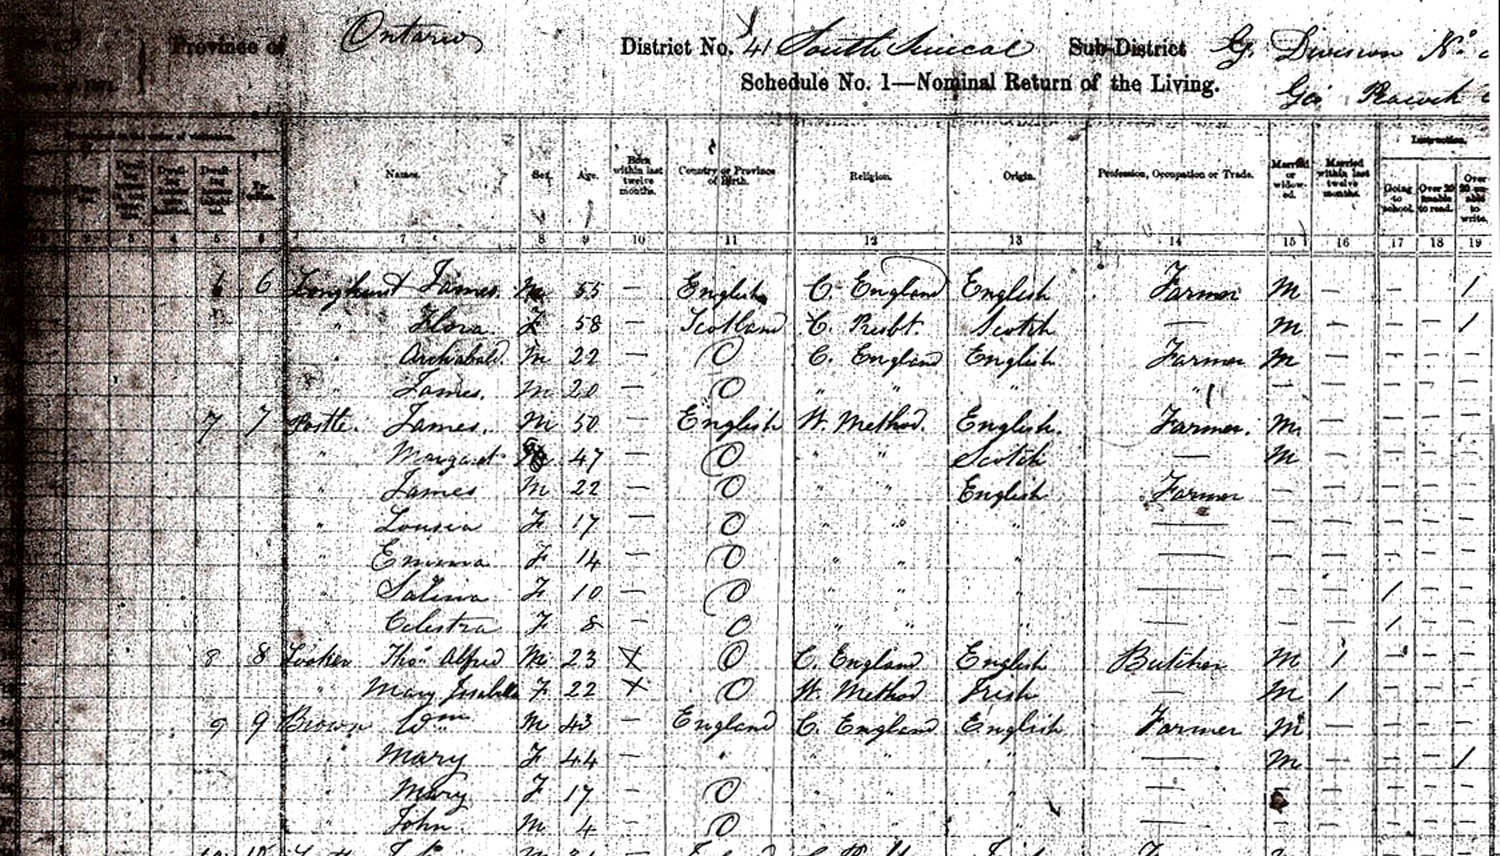 Province of Ontario District No. 41 South Simcoe Sub-District G. Division No.
Schedule No. 1—Nominal Return of the Living.
Geo Peacock
Names. Sex. Age. Born within last twelve months. Country or Province of Birth. Religion. Origin. Profession, Occupation or Trade. Married or widowed. Married within last twelve months. Instruction. Going to school. Over 20 unable to read. Over 20 unable to write.
3 4 5 6 7 8 9 10 11 12 13 14 15 16 17 18 19
6 6 Longhurst James. M 55 — English C. England English Farmer M — — — 1
" Flora. F 58 — Scotland C. Presbt. Scotch — M — — — 1
" Archabald. M 22 — O C. England English Farmer M — — — —
" James. M 20 — O " " " " — — — — —
7 7 Postle. James. M 50 — English W. Method. English. Farmer. M. — — — —
" Margaret 47 — O " " Scotch — M — — — —
" James M 22 — O " " English Farmer — — — — —
" Lousia F 17 — O " " " — — — — — —
Emma F 14 — O " " " — — — — — —
" Salina F 10 — O " " " — — — 1 — —
Celestra F 8 — O " " " — — — 1 — —
8 8 Looker Thos Alfred M 23 X O C. England English Butcher M 1 — — —
" Mary Issabella F 22 X O W. Method Irish — M 1 — — —
9 9 Brown Wm M 43 — England C. England English Farmer M — — — —
" Mary F 44 — " " " " — M — — — 1
" Mary F 17 — O " " " — — — — —
" John M 4 — O " " " — — — — — —